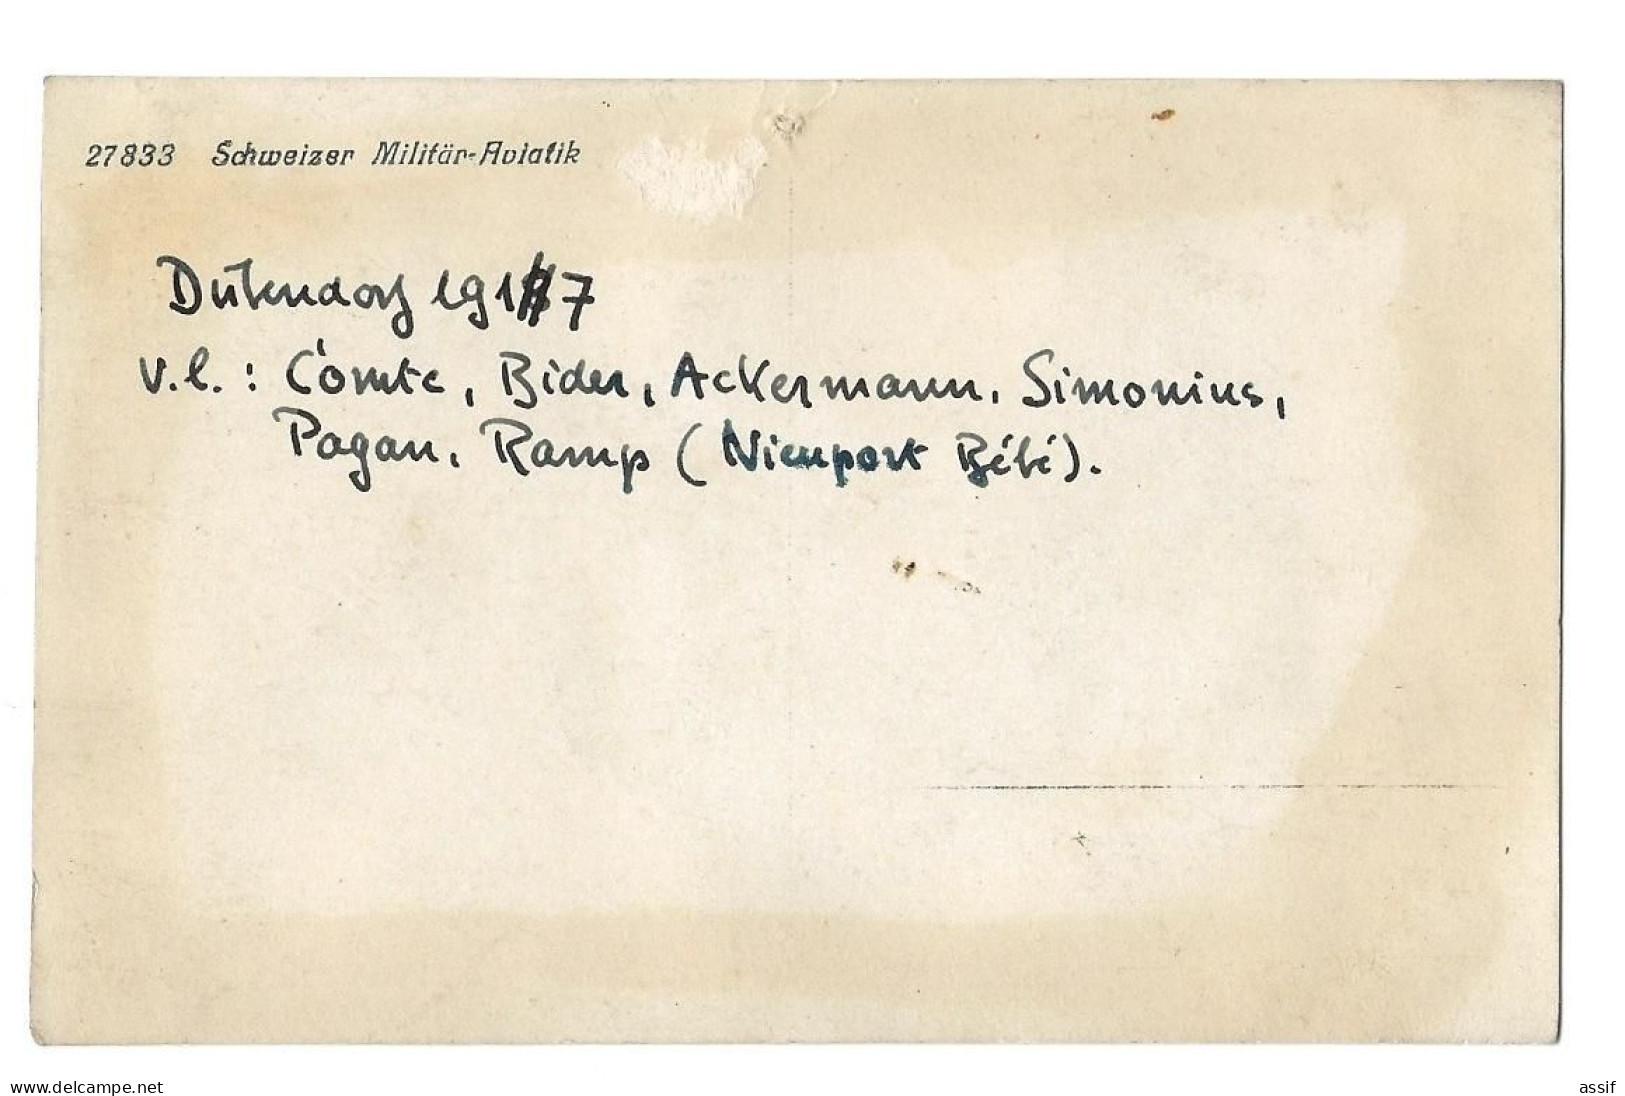 27833 Schweizer Militär-Aviatik
Dübendorf 1917
v.l. : Comte, Bider, Ackermann, Simonius,
Pagan, Ramp (Nieuport Bébé).
www.delcampe.net
assif